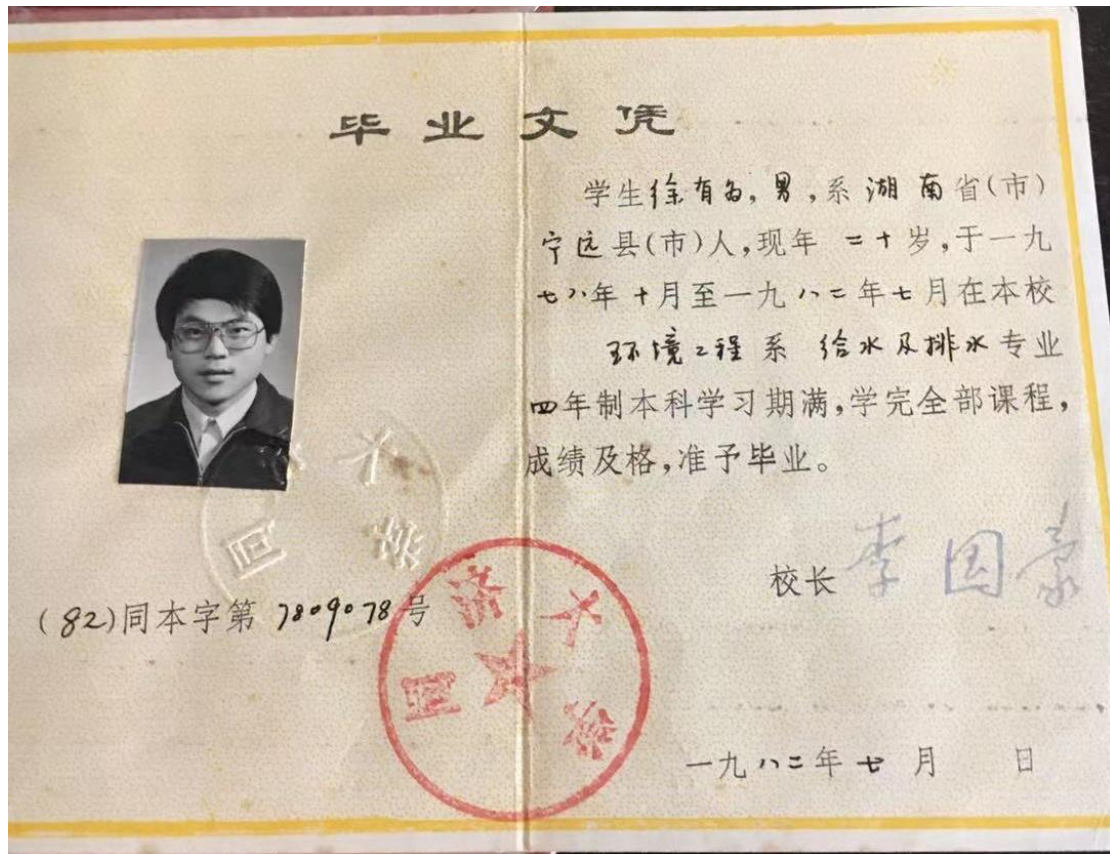 毕业文凭
学生徐有为，男，系湖南省(市)
宁远县(市)人，现年 二十岁，于一九
七八年十月至一九八二年七月在本校
环境工程系 给水及排水专业
四年制本科学习期满，学完全部课程，
成绩及格，准予毕业。
校长 李国豪
(82)同本字第 7809078 号
同济大学
同济大学
一九八二年七月 日